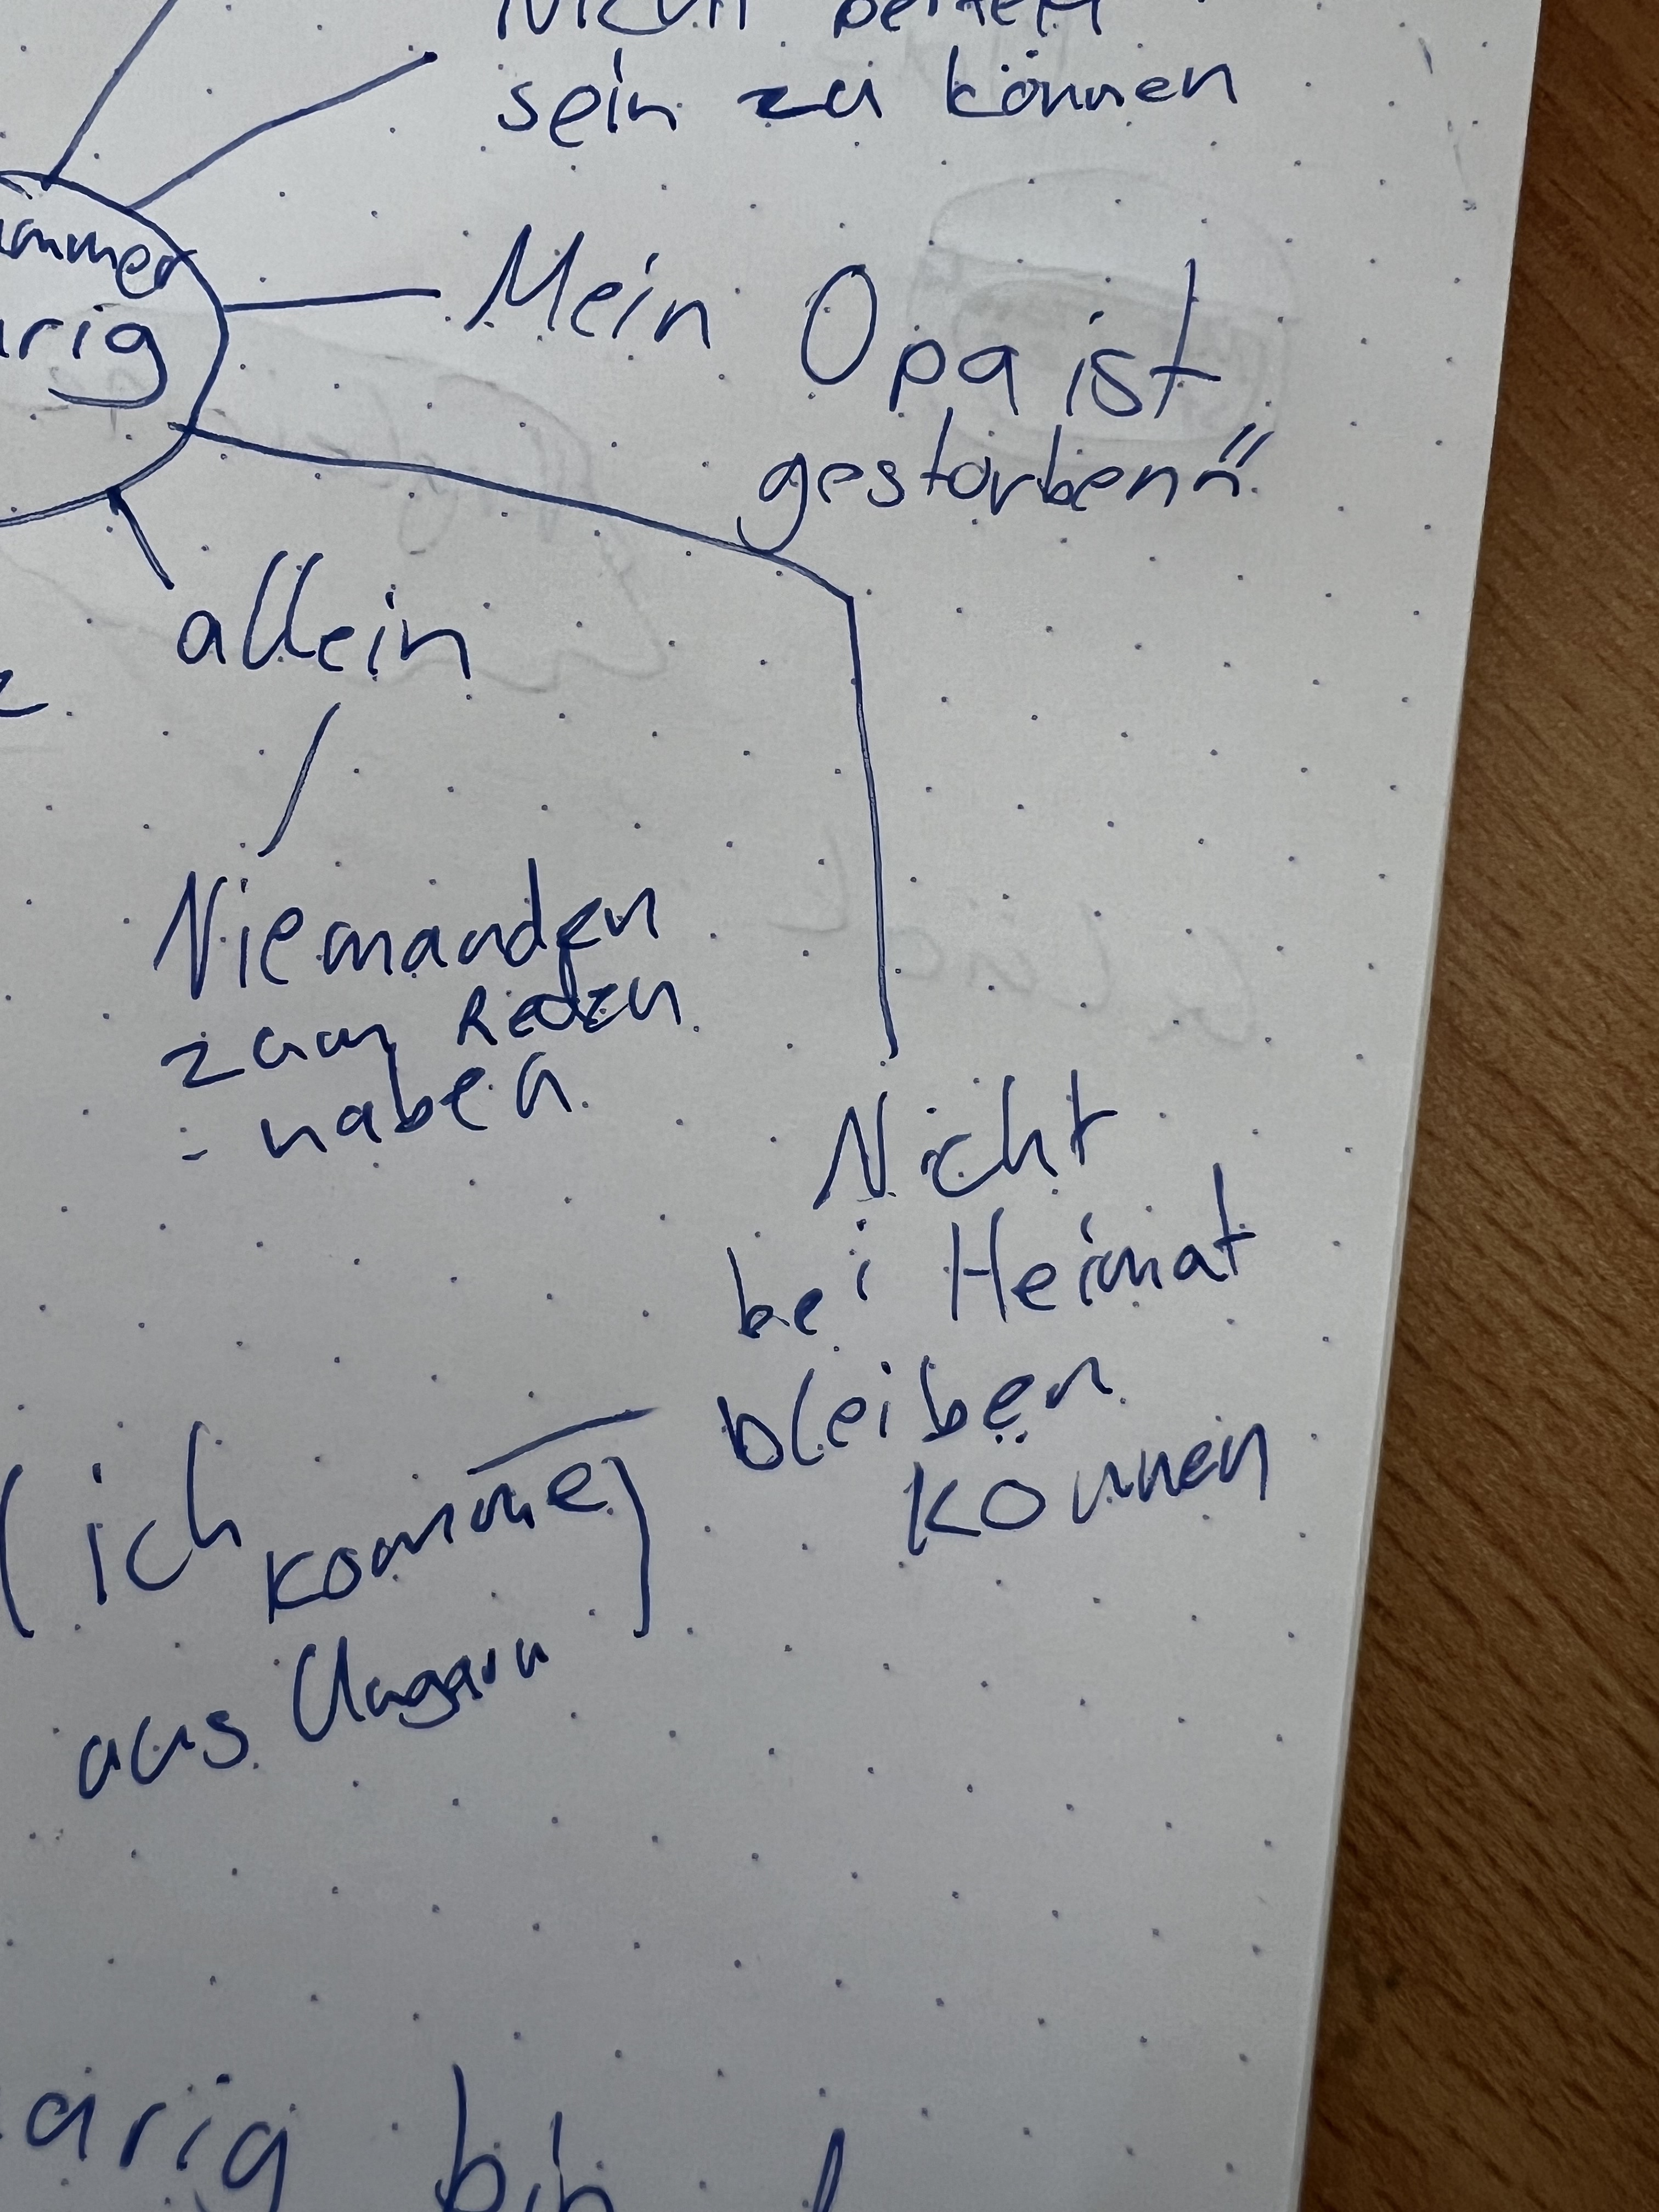 sein zu können
Mein Opa ist
gestorben"
allein
Niemanden
zum Reden
haben
Nicht
bei Heimat
bleiben
können
(ich komme)
aus Ungarn
bin